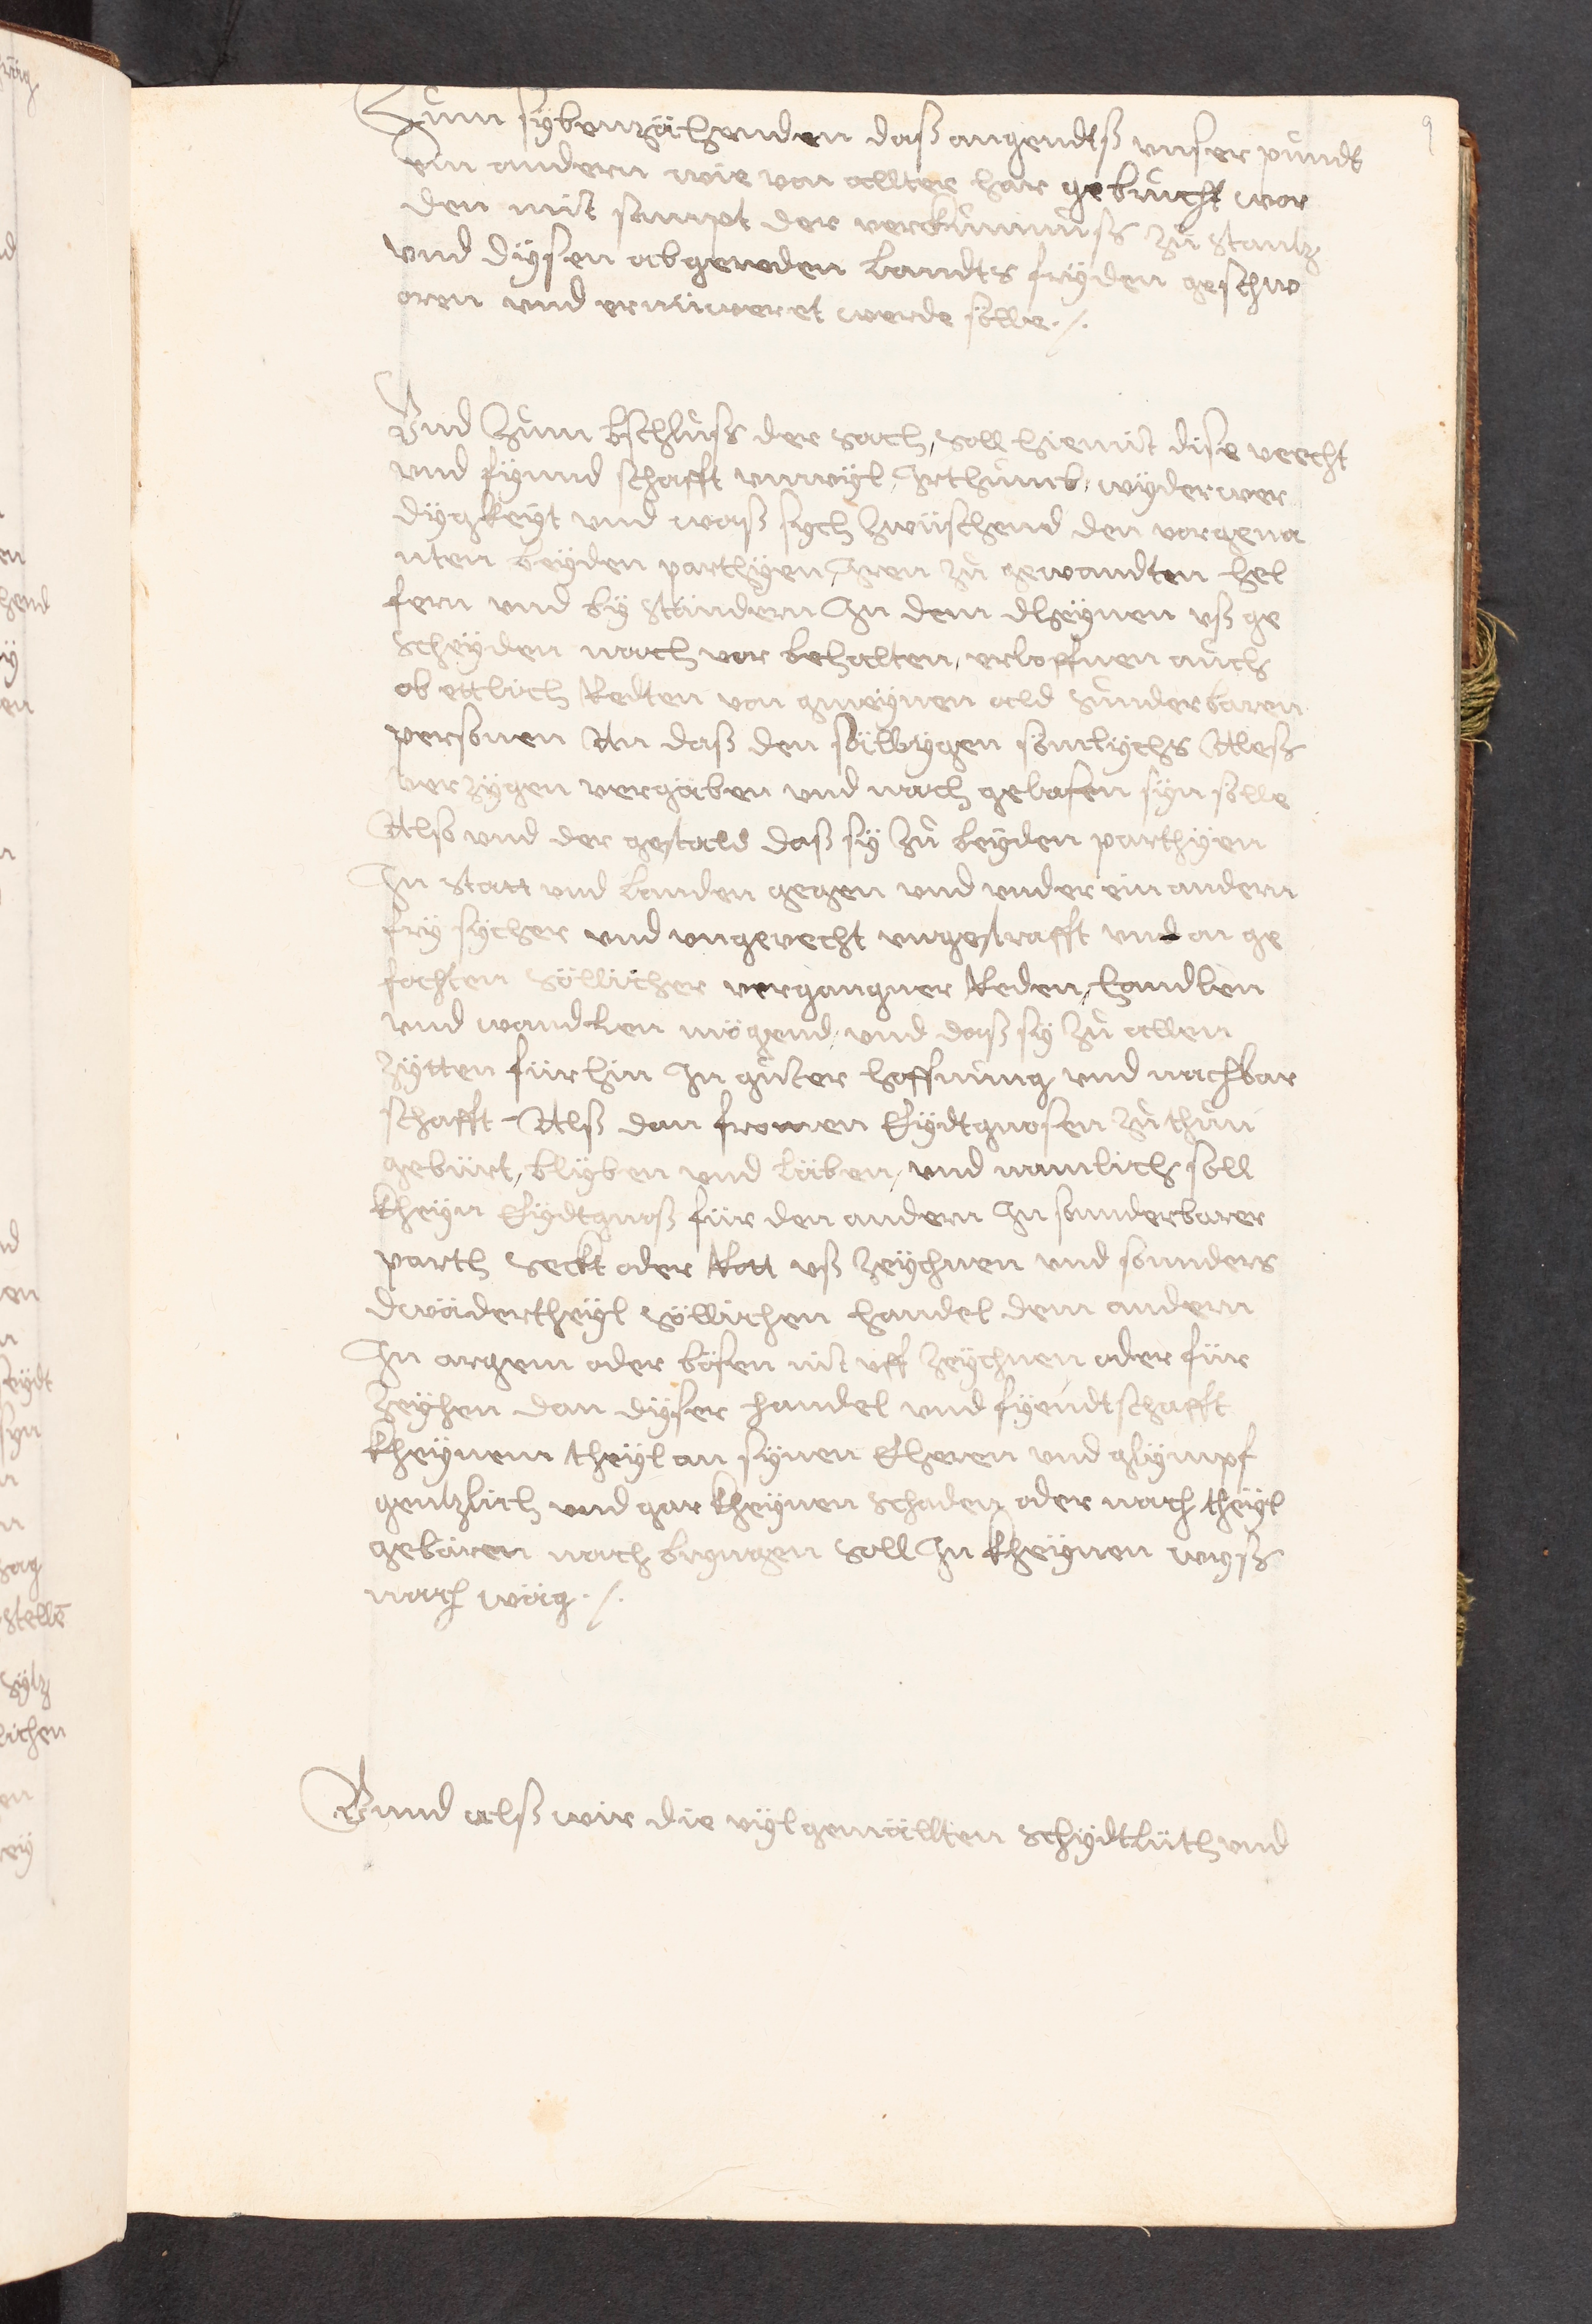 9
Zum sybenzächenden daß angendtß vnser pündt
ein andern wie von allter har gebrucht wor
den mit sampt der verckumnuß zu Stantz
vnd dysen abgereden landts fryden geschwo
oren vnd ernüweret werde sölle ./.
Vnd Zum bschluß der sach, soll hiemit dise veecht
vnd fyend schafft vnwyl, Irthumb, wyderwer
dygkeyt vnd waß sych zwüschend den vorgena
nten beyden parthyen, Iren zu gewandten hel
fern vnd by ständern In dem dheynen vß ge
scheyden nach vor behalten, verloffnen auch
ob ettlich Redten von gmeynen ald sunderbaren
personen An daß den sälbygen sömlychs Aless
verzygen vergäben vnd nach gelasen syn sölle
Also vnd der gestald daß sy zu beyden parthyen
In statt vnd landen gegen vnd vnder ein andern
fry sycher vnd vngevecht vngestrafft vnd an ge
fochten söllicher vergangner Reden, handlen
vnd wandlen mögend, vnd daß sy zu allen
zytten fürhin In guter hoffnung vnd nachbar
schafft Alß dan fromen Eydtgnosen zu thun
gebürt, blyben vnd läben, vnd namlich soll
kheyn Eydtgnoß für den andern In sonderbarer
parth Seckt oder Rott vß zeychnen vnd sonders
dwädertheyl söllichen handel dem andern
In argem oder bösen nit vff zeychnen oder für
zeyhen dan dyser handel vnd fyendtschafft
kheynem theyl an synen Eheren vnd glympf
gentzlich vnd gar kheynen schaden oder nach theyl
gebären nach bryngen soll In kheynen wyß
nach wäg ./.
Vnnd alß wir die vylgemällten schydtlüth vnd